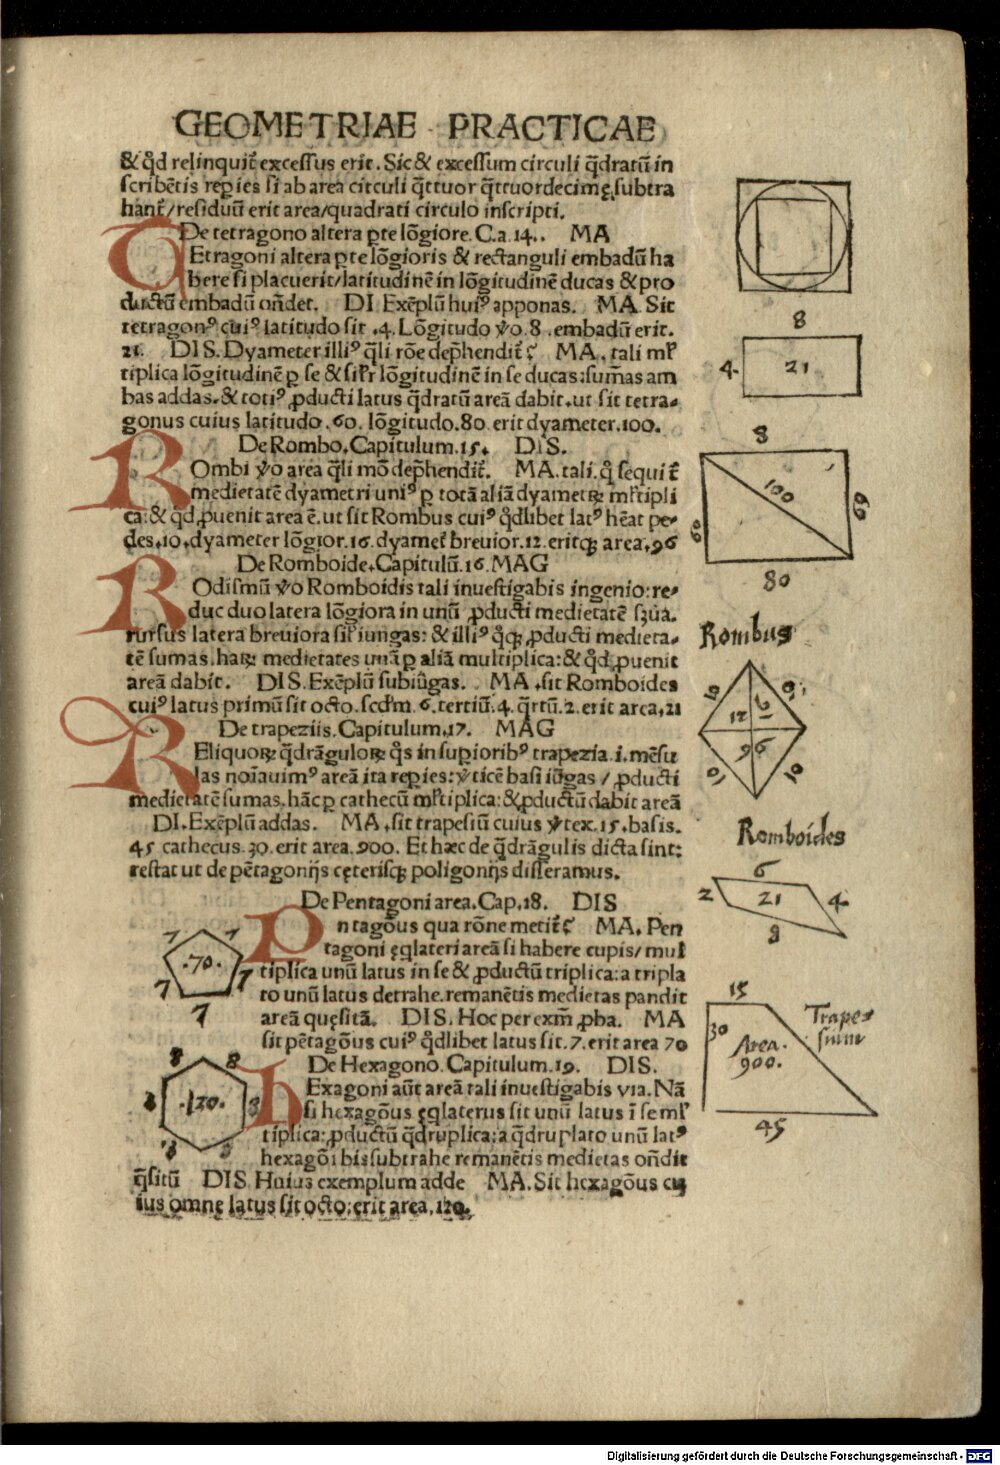 GEOMETRIAE PRACTICAE
& qd̄ relinquit᷑ excessus erit. Sic & excessum circuli q̄dratū in
scribētis rep̲ies si ab area circuli q̄ttuor q̄ttuordecimę subtra
hant᷑/residuū erit area/quadrati circulo inscripti.
De tetragono altera p̲te lōgiore. C.a.14.. MA
TEtragoni altera p̲te lōgioris & rectanguli embadū ha
bere si placuerit/latitudinē in lōgitudinē ducas & pro
ductū embadū oñdet. DI. Exēplū huiꝰ apponas. MA. Sit
tetragonꝰ cuiꝰ latitudo sit .4. Lōgitudo v̄o .8. embadū erit.
21. DIS. Dyameter illiꝰ q̄li rōe dep̄hendit᷑ ς MA. tali ml̄
tiplica lōgitudinē p̲ se & sil̄r lōgitudinē in se ducas: sum̄as am
bas addas. & totiꝰ ꝓducti latus q̄dratū areā dabit. ut sit tetra⸗
gonus cuius latitudo .60. lōgitudo .80. erit dyameter .100.
De Rombo. Capitulum.15. DIS.
ROmbi v̄o area q̄li mō dep̄hendit᷑. MA. tali. q̄ sequit᷑
medietatē dyametri uniꝰ p̲ totā aliā dyametꝝ ml̄tipli
ca: & qd̄ ꝓuenit area ē. ut sit Rombus cuiꝰ qd̄libet latꝰ hēat pe⸗
des .10. dyameter lōgior .16. dyamet᷑ breuior .12. eritqꝫ area .96
De Romboide. Capitulū.16. MAG
RODismū v̄o Romboidis tali inuestigabis ingenio: re⸗
duc duo latera lōgiora in unū ꝓducti medietatē s3ua.
rursus latera breuiora sil̄ iungas: & illiꝰ qꝫ ꝓducti medieta⸗
tē sumas. haꝝ medietates unā p̲ aliā multiplica: & qd̄ ꝓuenit
areā dabit. DIS. Exēplū subiūgas. MA. sit Romboides
cuiꝰ latus primū sit octo. secd̄m .6. tertiū .4. q̄rtū .2. erit area .21
De trapeziis. Capitulum.17. MAG
REliquoꝝ q̄drāguloꝝ q̄s in sup̲ioribꝰ trapezia .i. mēsu
las noīauimꝰ areā ita rep̲ies: v̄ticē basi iūgas / ꝓducti
medietatē sumas. hāc p̲ cathecū ml̄tiplica: & ꝓductū dabit areā
DI. Exēplū addas. MA. sit trapesiū cuius v̄tex .15. basis.
45 cathecus .30. erit area .900. Et hæc de q̄drāgulis dicta sint:
restat ut de pētagonijs cęterisqꝫ poligonijs disseramus.
De Pentagoni area. Cap.18. DIS
Pntagōus qua rōne metit᷑ ς MA. Pen
tagoni ęqlateri areā si habere cupis/ mul
tiplica unū latus in se & ꝓductū triplica: a tripla
to unū latus detrahe. remanētis medietas pandit
areā quęsitā. DIS. Hoc per exm̄ ꝓba. MA
sit pētagōus cuiꝰ qd̄libet latus sit .7. erit area 70
De Hexagono. Capitulum.19. DIS.
hExagoni aūt areā tali inuestigabis via. Nā
si hexagōus ęqlaterus sit unū latus ī se ml̄
tiplica: ꝓductū q̄druplica: a q̄druplato unū latꝰ
hexagōi bis subtrahe remanētis medietas oñdit
q̄situ̅ DIS. Huius exemplum adde MA. Sit hexagōus cu
ius omnę latus sit octo: erit area .120.
8
4. 21
8
100
60 60
80
Rombus
10 10
12 16
96
10 10
Romboides
6
2 21 4
8
15
30 Area. 900.
Trapesium
45
7 7
.70.
7 7
7
8 8
8 .120. 8
8 8
Digitalisierung gefördert durch die Deutsche Forschungsgemeinschaft - DFG